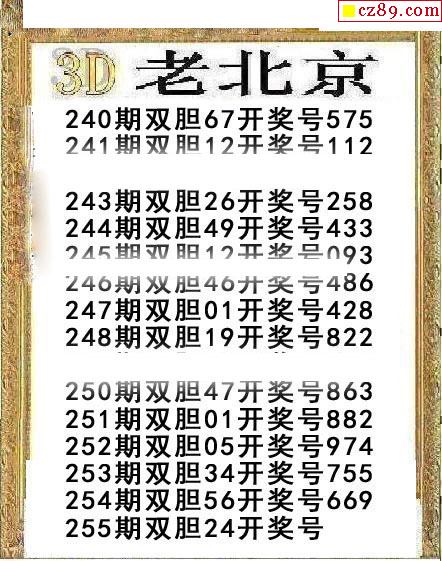 cz89.com
3D 老北京
240期双胆67开奖号575
241期双胆12开奖号112
243期双胆26开奖号258
244期双胆49开奖号433
245期双胆12开奖号093
246期双胆46开奖号486
247期双胆01开奖号428
248期双胆19开奖号822
250期双胆47开奖号863
251期双胆01开奖号882
252期双胆05开奖号974
253期双胆34开奖号755
254期双胆56开奖号669
255期双胆24开奖号